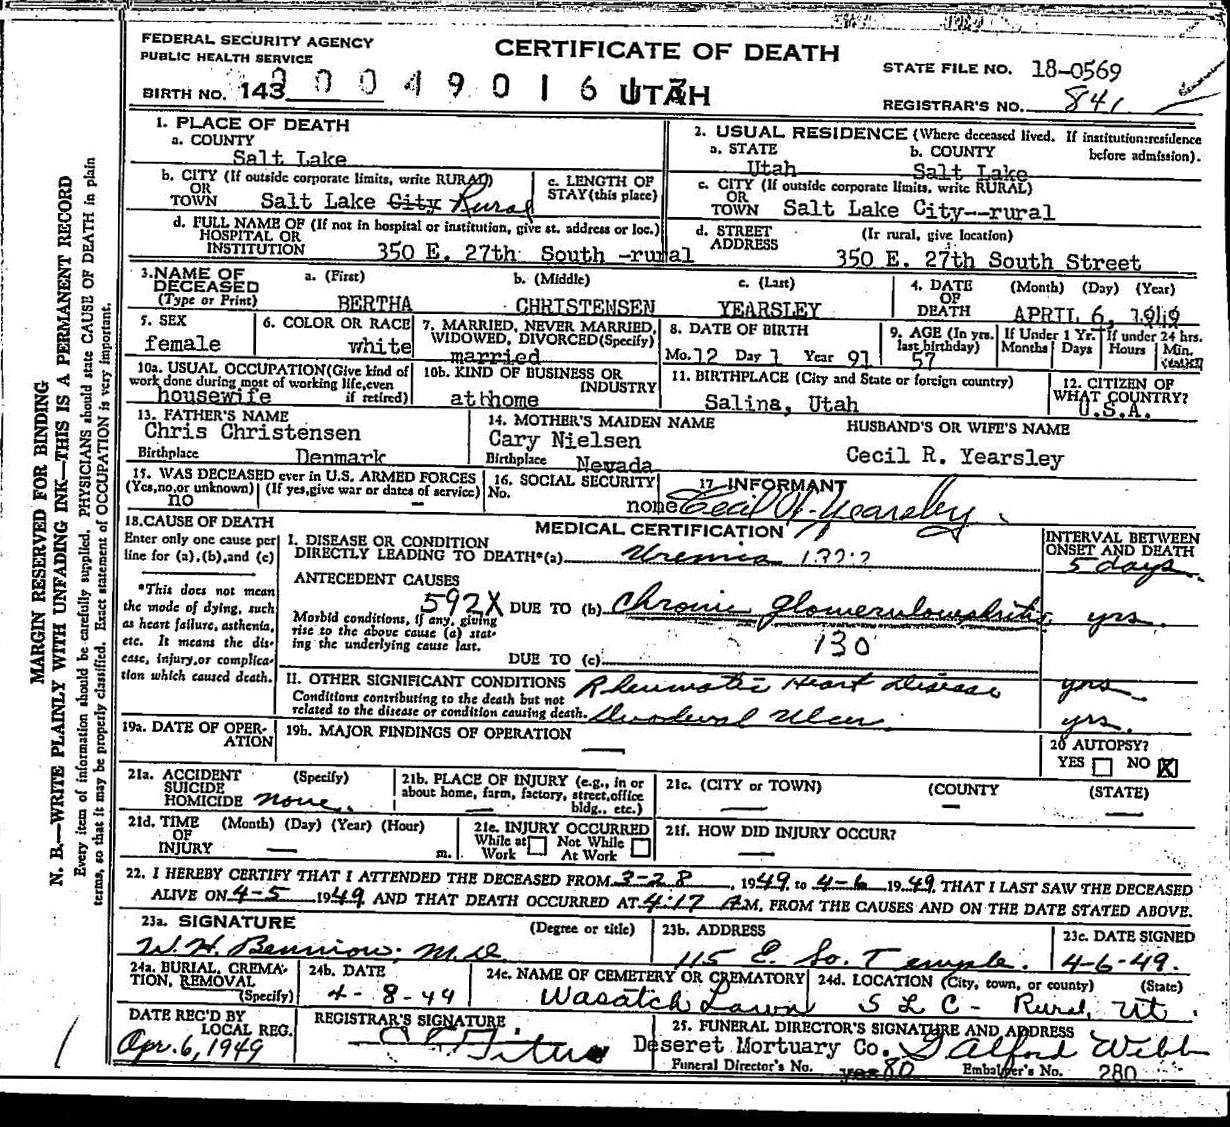 FEDERAL SECURITY AGENCY
PUBLIC HEALTH SERVICE
CERTIFICATE OF DEATH
STATE FILE NO. 18-0569
BIRTH NO. 143 UTAH
REGISTRAR'S NO. 841
MARGIN RESERVED FOR BINDING
N. B.—WRITE PLAINLY WITH UNFADING INK—THIS IS A PERMANENT RECORD
Every item of information should be carefully supplied. PHYSICIANS should state CAUSE OF DEATH in plain
terms, so that it may be properly classified. Exact statement of OCCUPATION is very important.
1. PLACE OF DEATH
a. COUNTY
Salt Lake
b. CITY (If outside corporate limits, write RURAL)
OR
TOWN Salt Lake City Rural
c. LENGTH OF
STAY (this place)
d. FULL NAME OF (If not in hospital or institution, give st. address or loc.)
HOSPITAL OR
INSTITUTION 350 E. 27th South -rural
2. USUAL RESIDENCE (Where deceased lived. If institution:residence
before admission).
a. STATE b. COUNTY
Utah Salt Lake
c. CITY (If outside corporate limits, write RURAL)
OR
TOWN Salt Lake City--rural
d. STREET (Ir rural, give location)
ADDRESS
350 E. 27th South Street
3. NAME OF DECEASED a. (First) b. (Middle) c. (Last)
(Type or Print) BERTHA CHRISTENSEN YEARSLEY
4. DATE OF DEATH (Month) (Day) (Year)
APRIL 6, 1949
5. SEX
female
6. COLOR OR RACE
white
7. MARRIED, NEVER MARRIED,
WIDOWED, DIVORCED(Specify)
married
8. DATE OF BIRTH
Mo. 12 Day 1 Year 91
9. AGE (In yrs. last birthday)
57
If Under 1 Yr. If under 24 hrs.
Months Days Hours Min.
10a. USUAL OCCUPATION(Give kind of
work done during most of working life,even
if retired)
housewife
10b. KIND OF BUSINESS OR
INDUSTRY
at home
11. BIRTHPLACE (City and State or foreign country)
Salina, Utah
12. CITIZEN OF
WHAT COUNTRY?
U.S.A.
13. FATHER'S NAME
Chris Christensen
Birthplace Denmark
14. MOTHER'S MAIDEN NAME
Cary Nielsen
Birthplace Nevada
HUSBAND'S OR WIFE'S NAME
Cecil R. Yearsley
15. WAS DECEASED ever in U.S. ARMED FORCES
(Yes,no,or unknown) (If yes,give war or dates of service)
no -
16. SOCIAL SECURITY
No.
none
17 INFORMANT
Cecil R. Yearsley
18.CAUSE OF DEATH
Enter only one cause per
line for (a),(b),and (c)
*This does not mean
the mode of dying, such
as heart failure, asthenia,
etc. It means the dis-
ease, injury,or complica-
tion which caused death.
MEDICAL CERTIFICATION
I. DISEASE OR CONDITION
DIRECTLY LEADING TO DEATH*(a) Uremia
INTERVAL BETWEEN
ONSET AND DEATH
5 days
ANTECEDENT CAUSES
592X DUE TO (b) Chronic glomerulonephritis yrs.
Morbid conditions, if any, giving
rise to the above cause (a) stat-
ing the underlying cause last.
130
DUE TO (c)
II. OTHER SIGNIFICANT CONDITIONS Rheumatic Heart Disease yrs
Conditions contributing to the death but not
related to the disease or condition causing death. Duodenal Ulcer yrs.
19a. DATE OF OPER-
ATION
19b. MAJOR FINDINGS OF OPERATION —
20 AUTOPSY?
YES NO X
21a. ACCIDENT (Specify)
SUICIDE
HOMICIDE none.
21b. PLACE OF INJURY (e.g., in or
about home, farm, factory, street,office
bldg., etc.)
—
21c. (CITY or TOWN) (COUNTY (STATE)
— — —
21d. TIME (Month) (Day) (Year) (Hour)
OF
INJURY — m.
21e. INJURY OCCURRED
While at Not While
Work At Work
21f. HOW DID INJURY OCCUR?
—
22. I HEREBY CERTIFY THAT I ATTENDED THE DECEASED FROM 3-28, 1949 to 4-6 1949, THAT I LAST SAW THE DECEASED
ALIVE ON 4-5 1949, AND THAT DEATH OCCURRED AT 4:17 A.M, FROM THE CAUSES AND ON THE DATE STATED ABOVE.
23a. SIGNATURE (Degree or title)
W. H. Bennion, M.D.
23b. ADDRESS
115 E. So. Temple.
23c. DATE SIGNED
4-6-49.
24a. BURIAL, CREMA-
TION, REMOVAL
(Specify)
24b. DATE
4-8-49
24c. NAME OF CEMETERY OR CREMATORY
Wasatch Lawn
24d. LOCATION (City, town, or county) (State)
S L C - Rural, Ut.
DATE REC'D BY
LOCAL REG.
Apr. 6, 1949
REGISTRAR'S SIGNATURE
25. FUNERAL DIRECTOR'S SIGNATURE AND ADDRESS
Deseret Mortuary Co. Alford Webb
Funeral Director's No. 80 Embalmer's No. 280